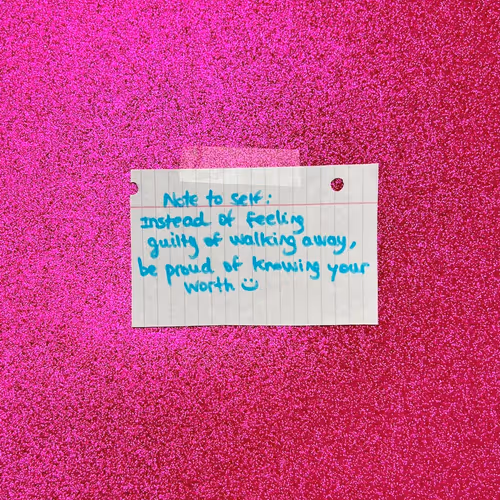 Note to self:
Instead of feeling
guilty of walking away,
be proud of knowing your
worth